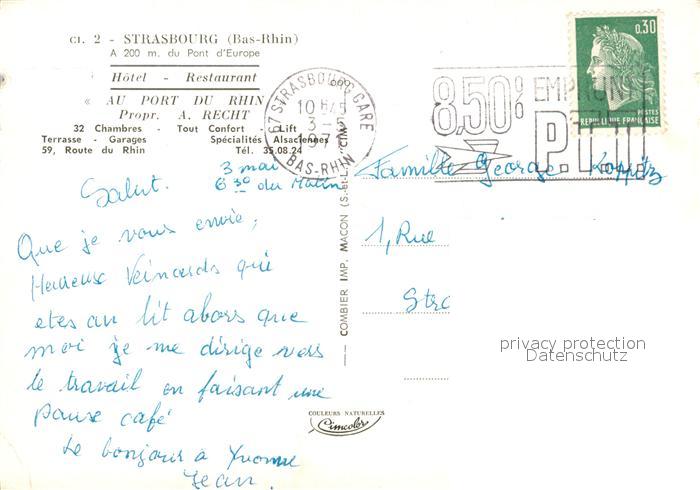 CI. 2 - STRASBOURG (Bas-Rhin)
A 200 m. du Pont d'Europe
Hôtel - Restaurant
« AU PORT DU RHIN
Propr. A. RECHT
32 Chambres - Tout Confort - Lift
Terrasse - Garages Spécialités Alsaciennes
59, Route du Rhin Tél. 35.08.24
67 STRASBOURG GARE
BAS-RHIN
8,50% EMPRUNT
P.T.T.
0,30
POSTES
REPUBLIQUE FRANÇAISE
3 mai
6 30 du Matin
Salut.
Que je vous envie,
Heureux Veinards qui
etes au lit alors que
moi je me dirige vers
le travail en faisant une
pause café
Le bonjour à Yvonne
Jean.
COMBIER IMP. MACON (S.-et-L.) CIM
Famille George
1, Rue
Stra
privacy protection
Datenschutz
COULEURS NATURELLES
Cimcolor